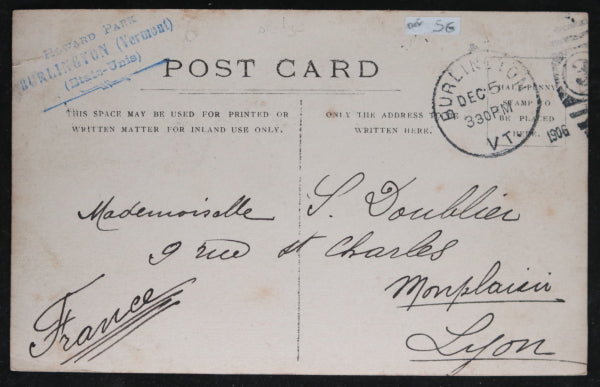 Howard Park
BURLINGTON (Vermont)
(Etats-Unis)
56
POST CARD
THIS SPACE MAY BE USED FOR PRINTED OR
WRITTEN MATTER FOR INLAND USE ONLY.
ONLY THE ADDRESS TO BE
WRITTEN HERE.
HALF-PENNY
STAMP TO
BE PLACED
HERE.
BURLINGTON
DEC 5
330PM
VT.
1906
Mademoiselle S. Doublier
9 rue st Charles
Monplaisir
Lyon
France